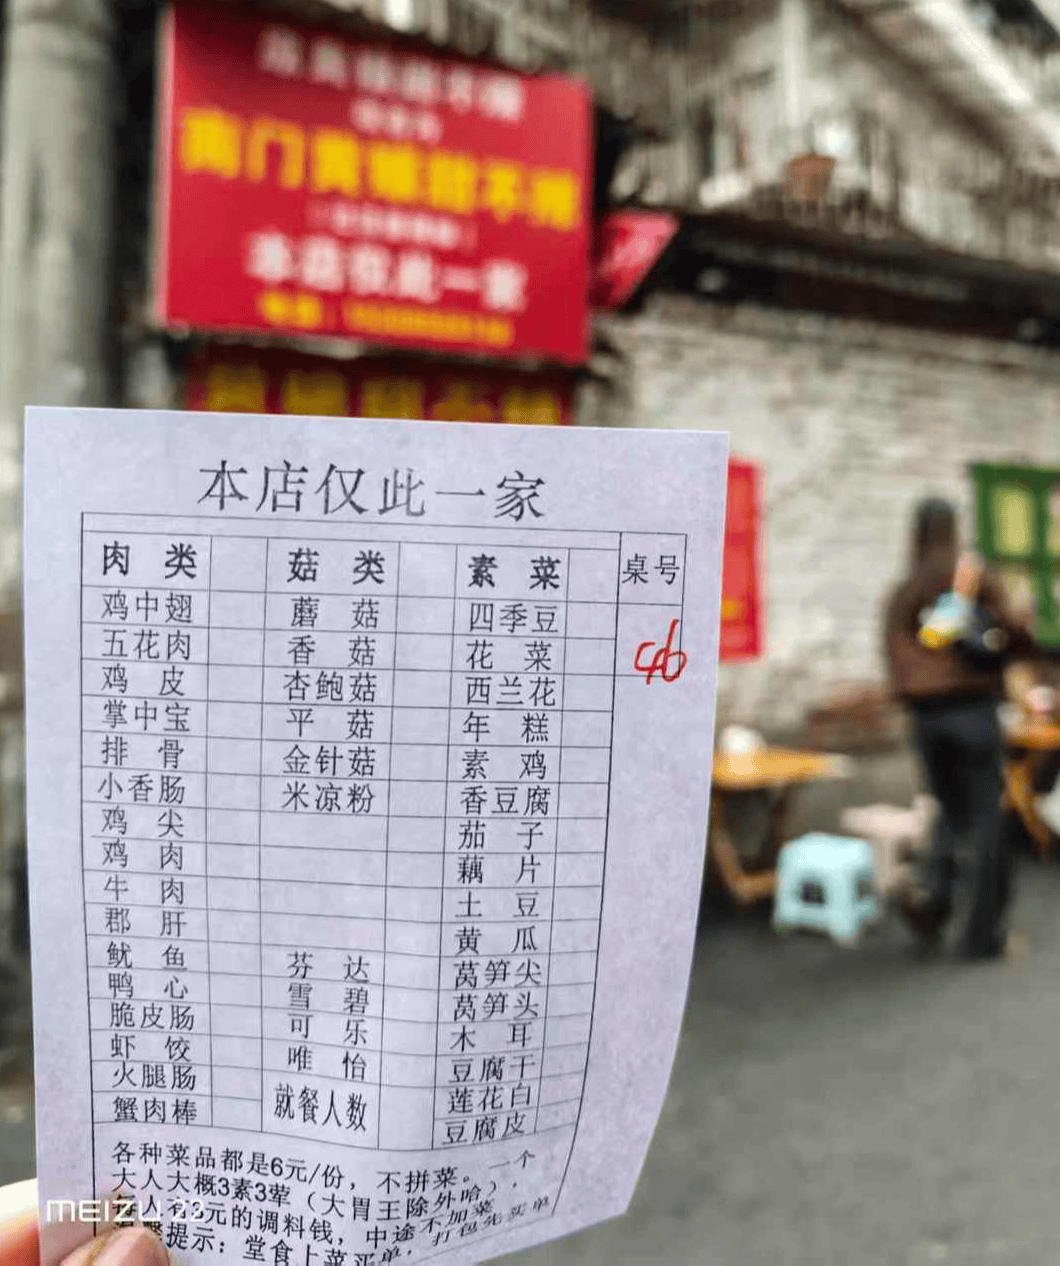 南门黄螺甜不辣
本店仅此一家
本店仅此一家
肉类 菇类 素菜 桌号
鸡中翅 蘑菇 四季豆
五花肉 香菇 花菜 46
鸡皮 杏鲍菇 西兰花
掌中宝 平菇 年糕
排骨 金针菇 素鸡
小香肠 米凉粉 香豆腐
鸡尖 茄子
鸡肉 藕片
牛肉 土豆
郡肝 黄瓜
鱿鱼 芬达 莴笋尖
鸭心 雪碧 莴笋头
脆皮肠 可乐 木耳
虾饺 唯怡 豆腐干
火腿肠 就餐人数 莲花白
蟹肉棒 豆腐皮
各种菜品都是6元/份，不拼菜。一个
大人大概3素3荤（大胃王除外哈），
每人有3元的调料钱，中途不加菜
提示：堂食上菜买单，打包先买单
MEIZU 23